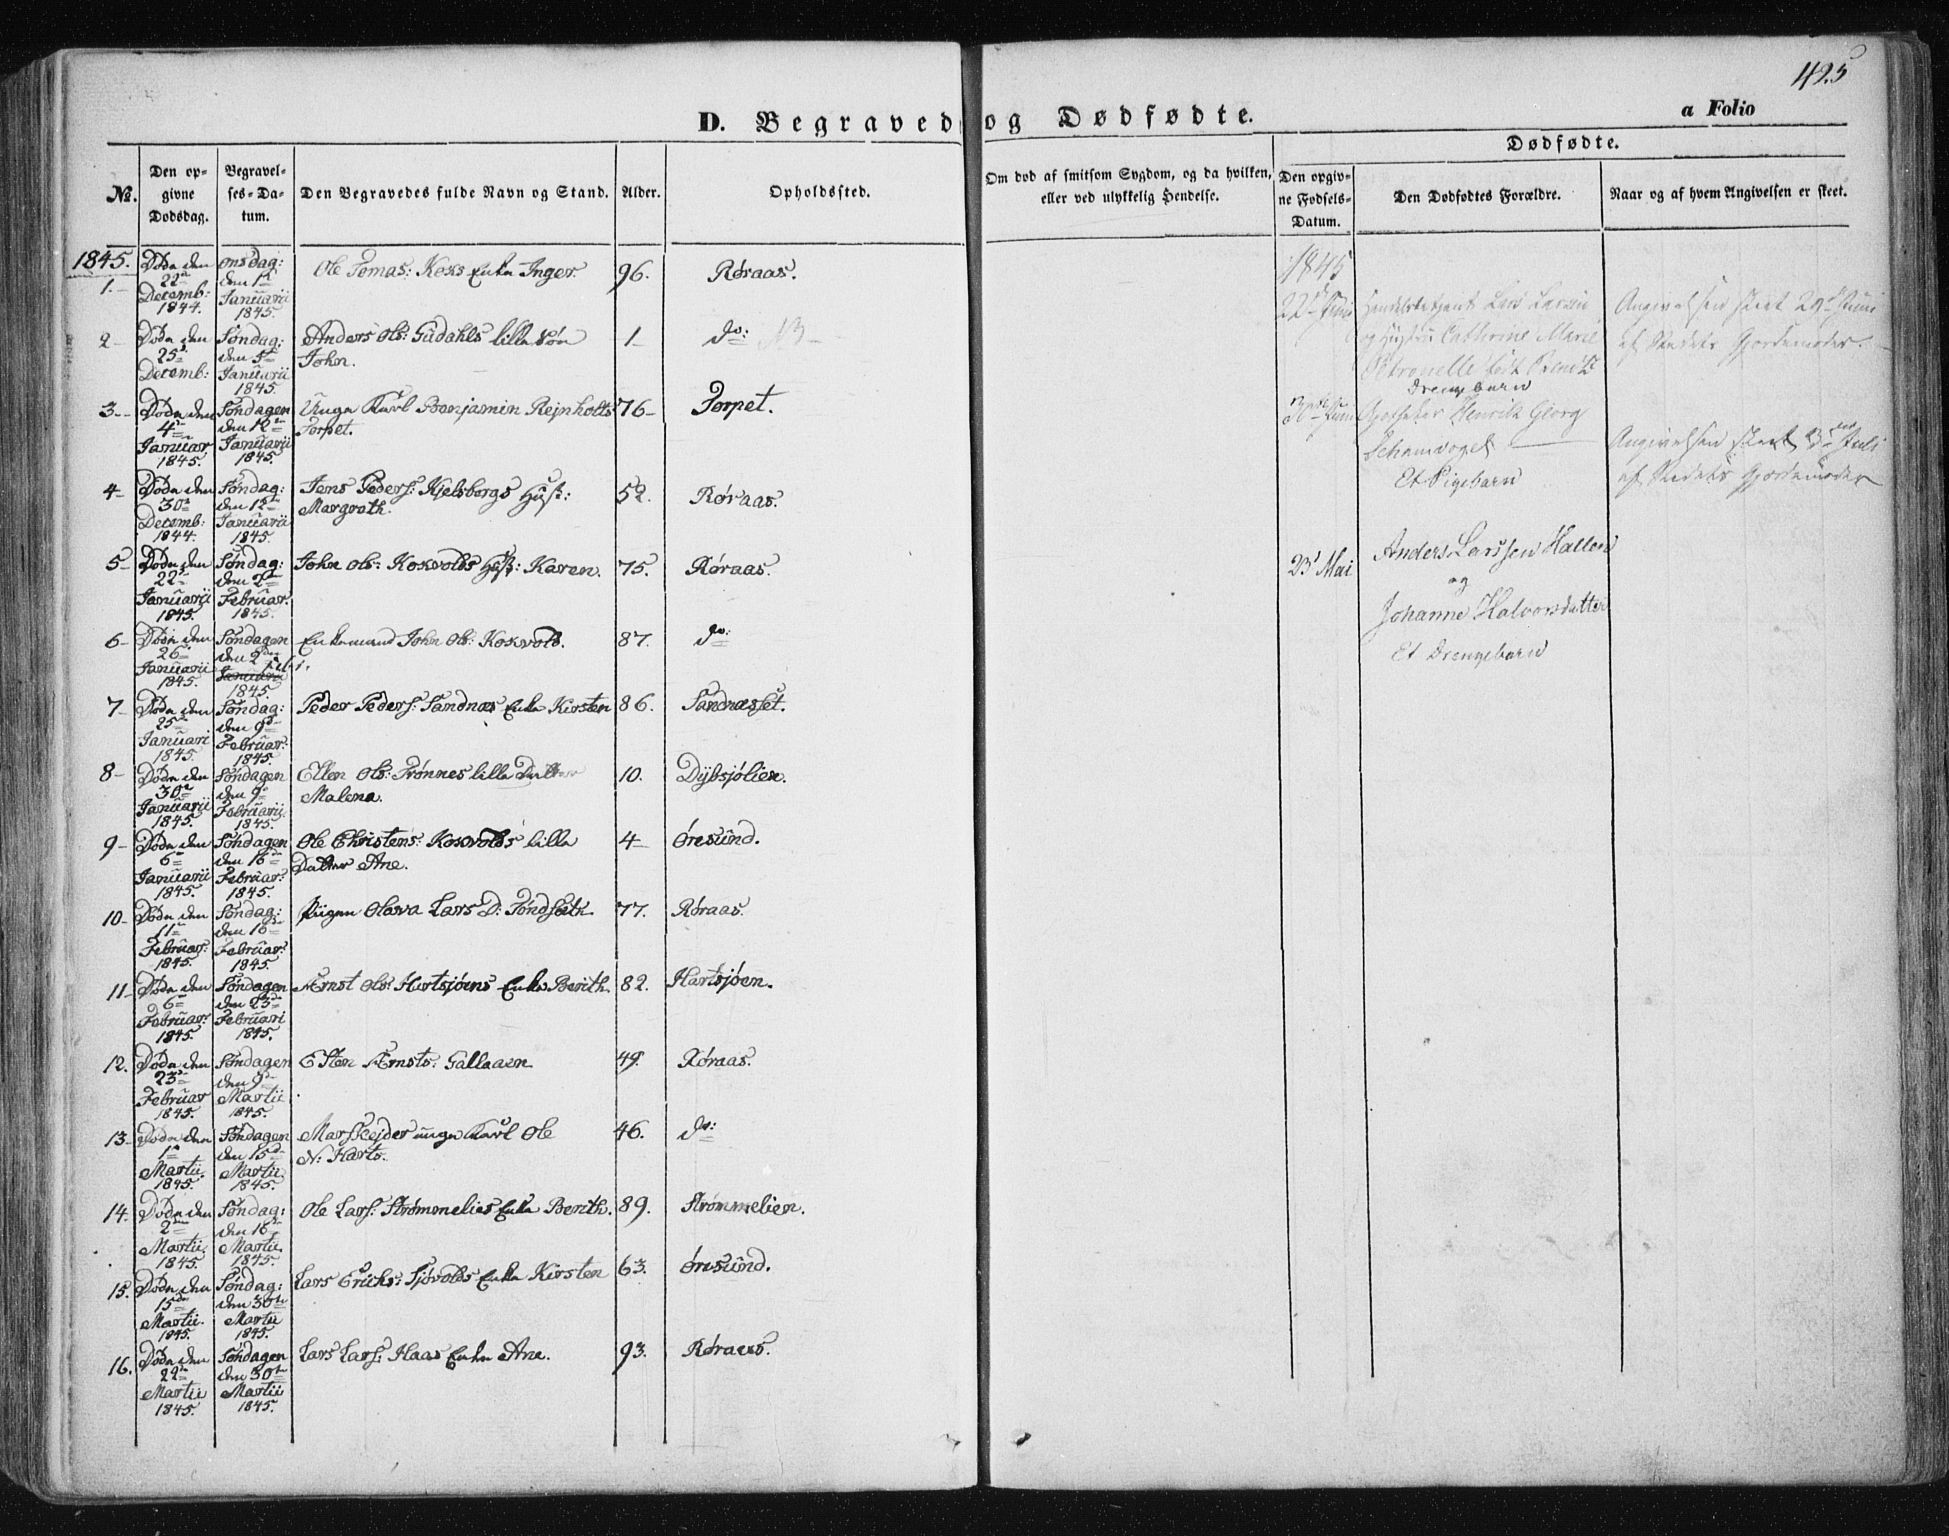 425
D. Begravede og Dødfødte.
a Folio
No. Den opgivne Dødsdag. Begravelses-Datum. Den Begravedes fulde Navn og Stand. Alder. Opholdssted.
Om død af smitsom Sygdom, og da hvilken, eller ved ulykkelig Hendelse.
Dødfødte.
Den opgivne Fødsels-Datum. Den Dødfødtes Forældre. Naar og af hvem Angivelsen er skeet.
1845.
1. Döde den 22de Decemb: 1844. Onsdag: den 1ste Januarii 1845. Ole Tomas: Enke Inger. 96. Røraas.
2 Döde den 25de Decemb: Søndag: den 5te Januarii 1845. Anders Ols: Gudahls lille Søn John. 1 do:
3 Döde den 4de Januar 1845. Søndagen den 12te Januarii 1845. Unge Karl Benjamin Rejnholts Torpet. 76 Torpet.
4 Döde den 30te Decemb: 1844. Søndag: den 12te Januarii 1845. Jens Peders: Kjelsbergs Hust: Margreth. 52. Røraas.
5 Döde den 22de Januarii 1845. Søndag: den 2den Februar. 1845. John Ols: Kosvolds Hust: Karen. 75. Røraas.
6 Döde den 26de Januarii 1845. Søndagen den 2den Januarii 1845. Enkemand John Ols: Kosvold. 87. do:
7 Döde den 25de Januari 1845. Søndag: den 9de Februar: 1845. Peder Peders: Sandnæs Enke Kirsten 86. Sandnæsset.
8 Döde den 30te Januarii 1845. Søndagen den 9de Februarii 1845. Ellen Ols: Trønnes lille Datter Malena. 10. Dybsjølien.
9 Döde den 6te Januarii 1845. Søndagen den 16de Februar: 1845. Ole Christens: Kosvolds lille Datter Ane. 4 Øresund.
10 Döde den 11te Februar: 1845. Søndag: den 16de Februar: 1845. Pigen Olava Lars D: Tøndseth. 77. Røraas.
11 Döde den 6te Februar: 1845. Søndagen den 23de Februari 1845. Ernst Ols: Hartsjøens Enke Berith. 82. Hartsjøen.
12. Döde den 23de Februar 1845. Søndagen den 9de Martii 1845. Esten Ernsts: Gallaaen 49. Røraas.
13 Döde den 1ste Martii. 1845. Søndagen den 15de Martii. 1845. Marskejder unge Karl Ole N: Harts. 46. do:
14. Döde den 2den Martii. 1845. Søndag: den 16de Martii. 1845. Ole Lars: Strømmelies Enke Berith. 89. Strømmelien.
15. Döde den 15de Martii. 1845. Søndag: den 30te Martii 1845. Lars Erichs: Sjøvolds Enke Kirsten 63. Øresund.
16. Döde den 22de Martii 1845. Søndagen den 30te Martii 1845. Lars Lars: Haas Enke Ane. 93. Røraas.
1845
22de Juni Lars Larsen og Hustru Cathrine Marie Petronelle født Drengebarn
Angivelsen skeet 29de Juni af Stedets Gjordemoder.
30te Juni Apotheker Henrik Georg Schamvogel Et Pigebarn
Angivelsen skeet 3die Juli af Stedets Gjordemoder
23 Mai Anders Larssen Hallen og Johanne Halvorsdatter Et Drengebarn